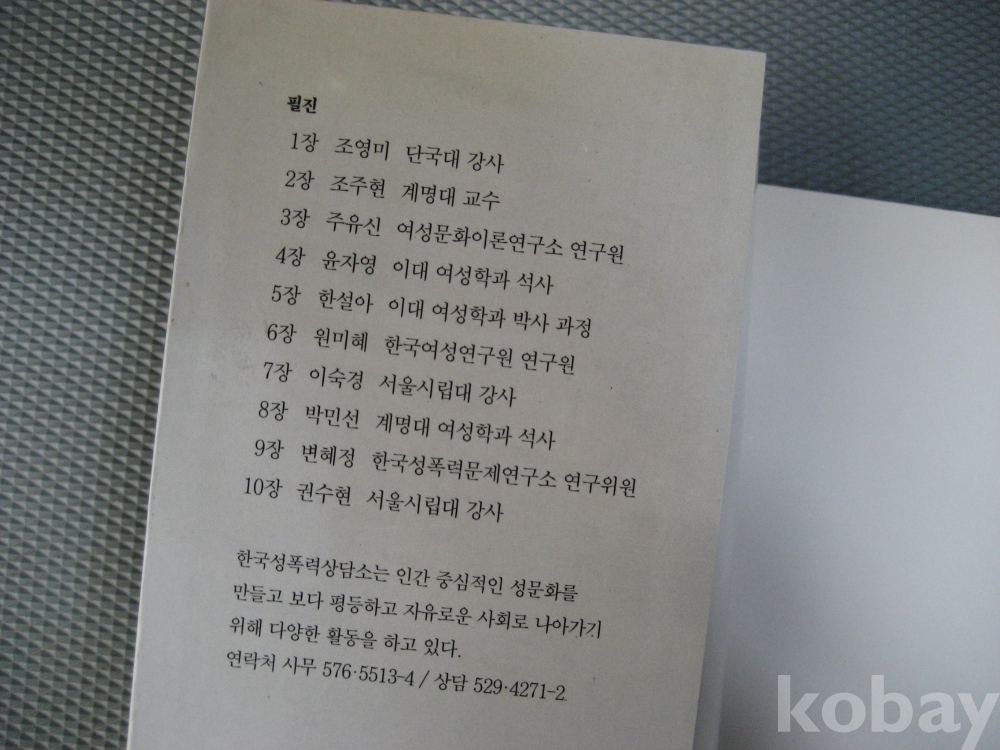 필진
1장 조영미 단국대 강사
2장 조주현 계명대 교수
3장 주유신 여성문화이론연구소 연구원
4장 윤자영 이대 여성학과 석사
5장 한설아 이대 여성학과 박사 과정
6장 원미혜 한국여성연구원 연구원
7장 이숙경 서울시립대 강사
8장 박민선 계명대 여성학과 석사
9장 변혜정 한국성폭력문제연구소 연구위원
10장 권수현 서울시립대 강사
한국성폭력상담소는 인간 중심적인 성문화를
만들고 보다 평등하고 자유로운 사회로 나아가기
위해 다양한 활동을 하고 있다.
연락처 사무 576·5513-4 / 상담 529·4271-2
kobay